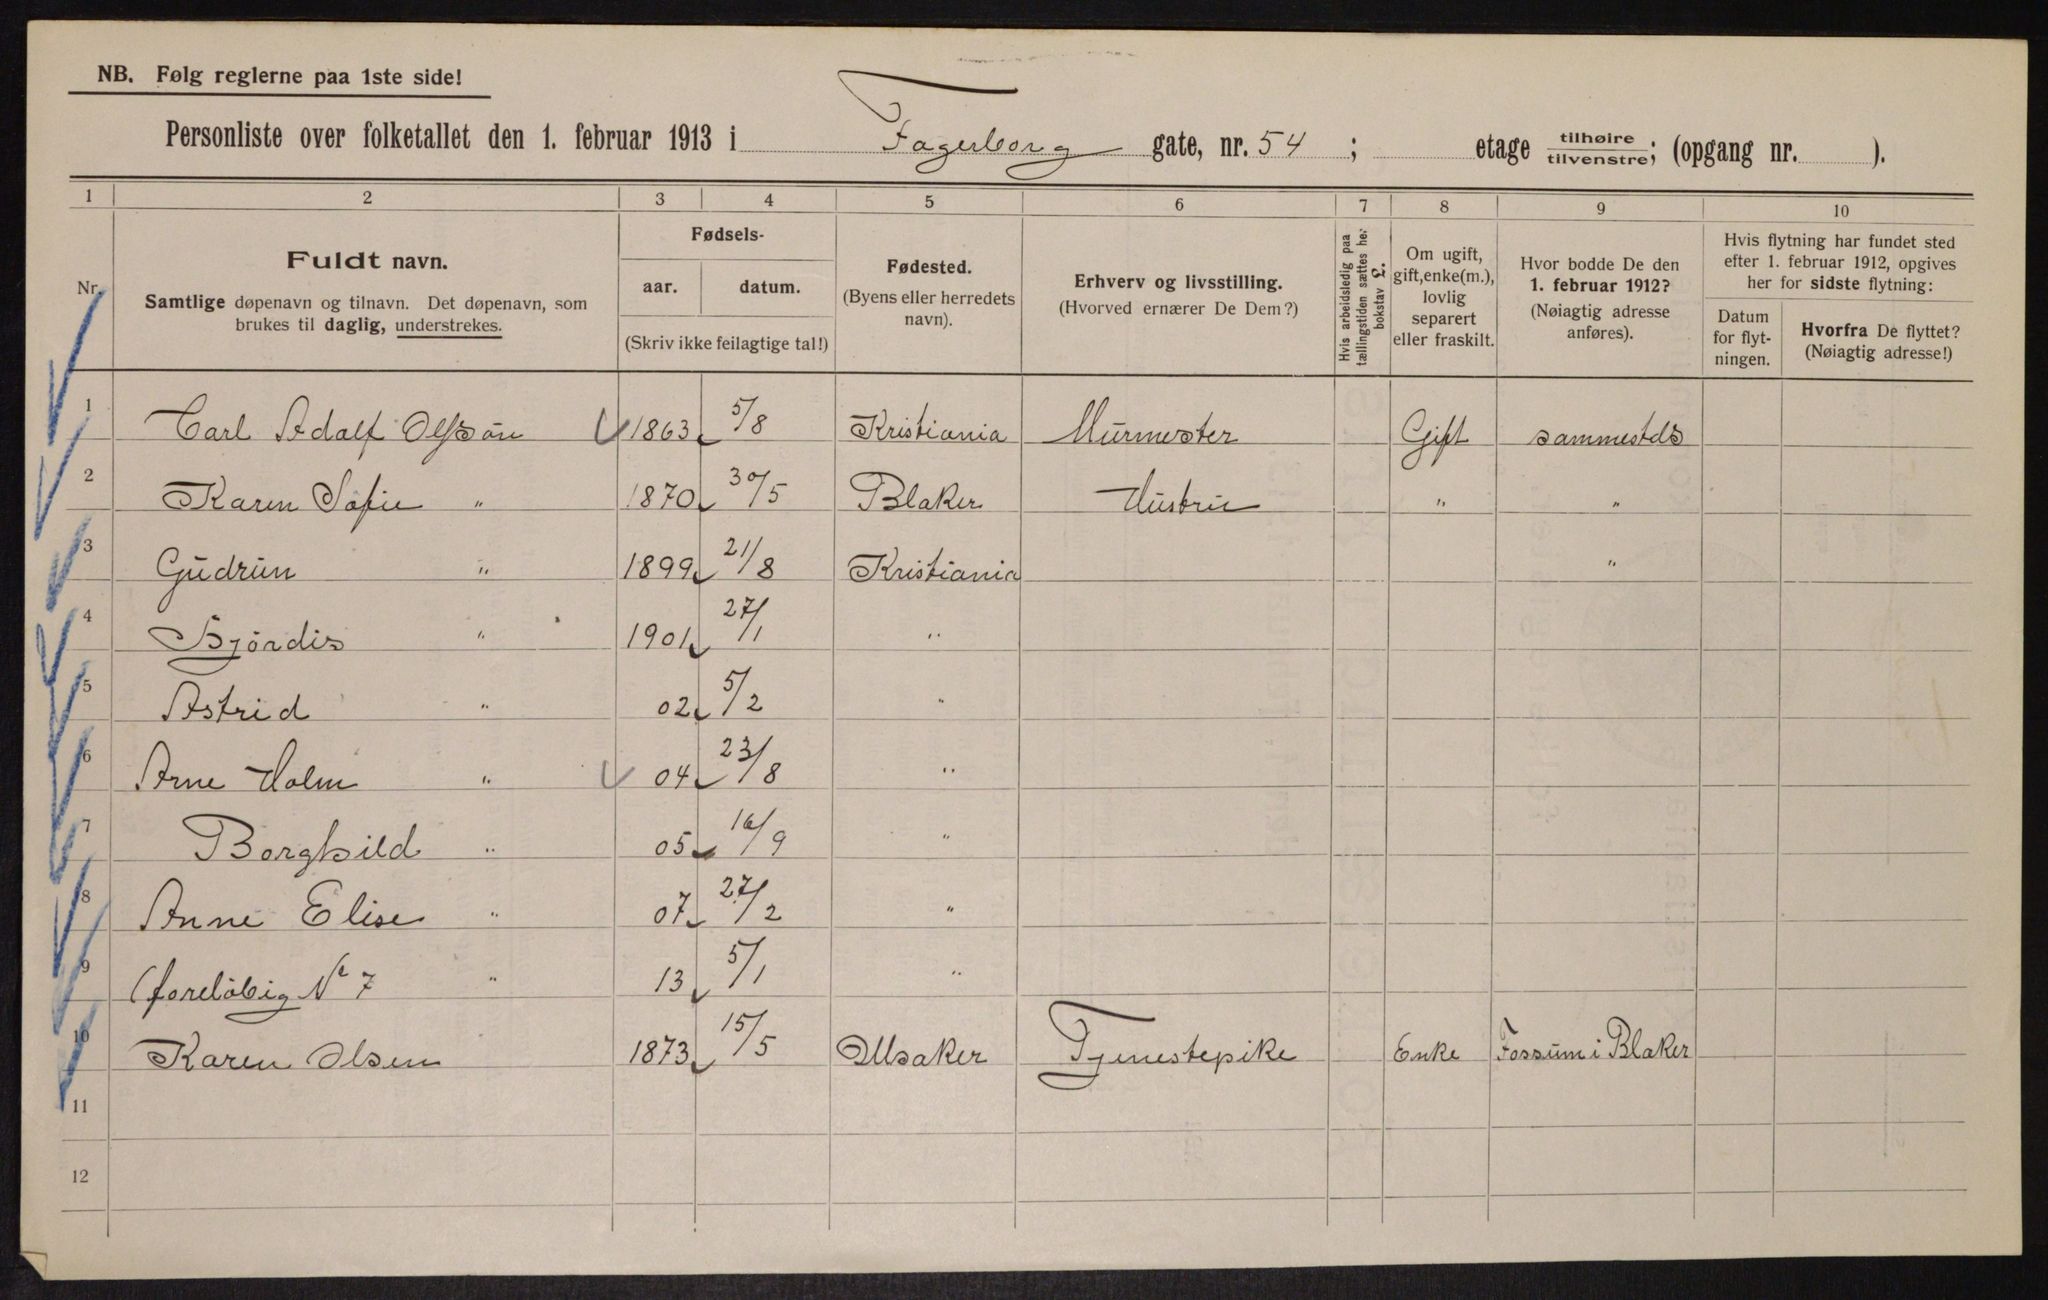 NB. Følg reglerne paa 1ste side!
Personliste over folketallet den 1. februar 1913 i Fagerborg gate, nr. 54 ; etage tilhøire / tilvenstre; (opgang nr. ).
1 2 3 4 5 6 7 8 9 10
Nr.
Fuldt navn.
Samtlige døpenavn og tilnavn. Det døpenavn, som
brukes til daglig, understrekes.
Fødsels-
aar. datum.
(Skriv ikke feilagtige tal!)
Fødested.
(Byens eller herredets
navn).
Erhverv og livsstilling.
(Hvorved ernærer De Dem?)
Hvis arbeidsledig paa
tællingstiden sættes her
bokstav L.
Om ugift,
gift, enke(m.),
lovlig
separert
eller fraskilt.
Hvor bodde De den
1. februar 1912?
(Nøiagtig adresse
anføres).
Hvis flytning har fundet sted
efter 1. februar 1912, opgives
her for sidste flytning:
Datum
for flyt-
ningen.
Hvorfra De flyttet?
(Nøiagtig adresse!)
1 Carl Adolf Olsson 1863 5/8 Kristiania Murmester Gift sammesteds
2 Karen Sofie " 1870 30/5 Blaker Hustru " "
3 Gudrun " 1899 21/8 Kristiania "
4 Hjørdis " 1901 27/1 "
5 Astrid " 02 5/2 "
6 Arne Holm " 04 23/8 "
7 Borghild " 05 16/9 "
8 Anne Elise " 07 27/2 "
9 (foreløbig No 7 " 13 5/1 "
10 Karen Olsen 1873 15/5 Tjenestepike Enke Fossum i Blaker
11
12